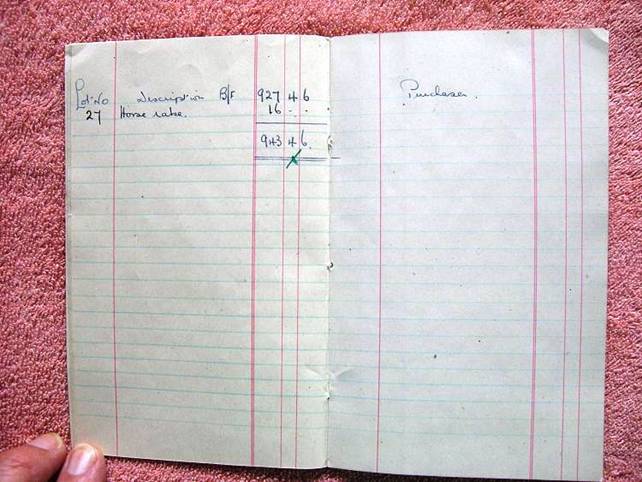 Lot No Description B/f 927 4 6 Purchaser.
27 Horse rake. 16 . .
943 4 6.